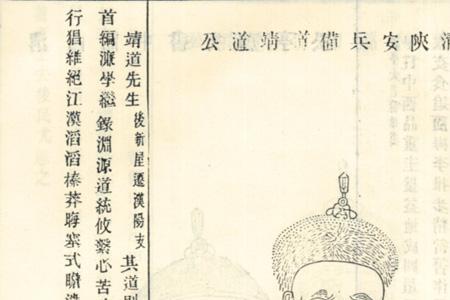 清陝安兵備道靖道公
靖道先生後新屋遷漢陽支其道則
首編濂學繼錄淵源道統攸繫心苦
行猖維絕江漢滔滔榛莽晦塞式瞻